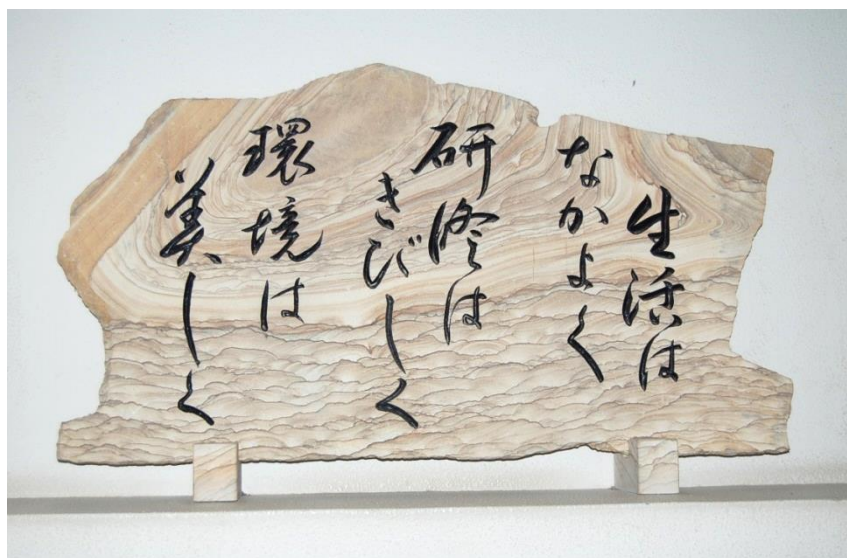 生活は
なかよく
研修は
きびしく
環境は
美しく